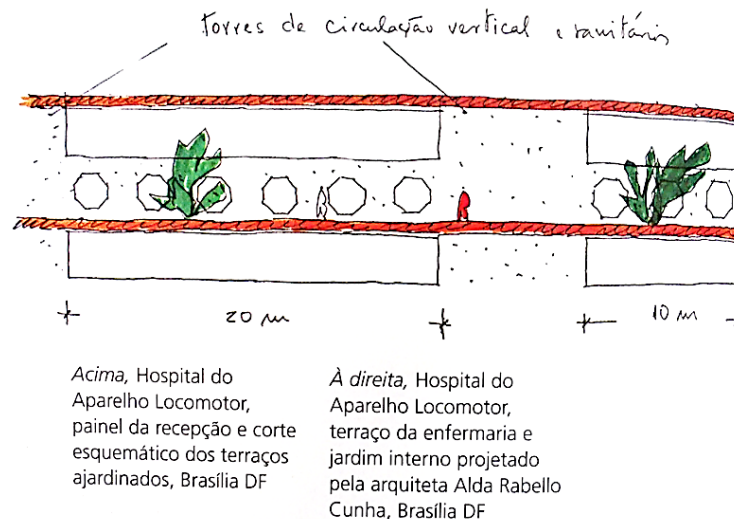 torres de circulação vertical e sanitários
20 m
10 m
Acima, Hospital do
Aparelho Locomotor,
painel da recepção e corte
esquemático dos terraços
ajardinados, Brasília DF
À direita, Hospital do
Aparelho Locomotor,
terraço da enfermaria e
jardim interno projetado
pela arquiteta Alda Rabello
Cunha, Brasília DF